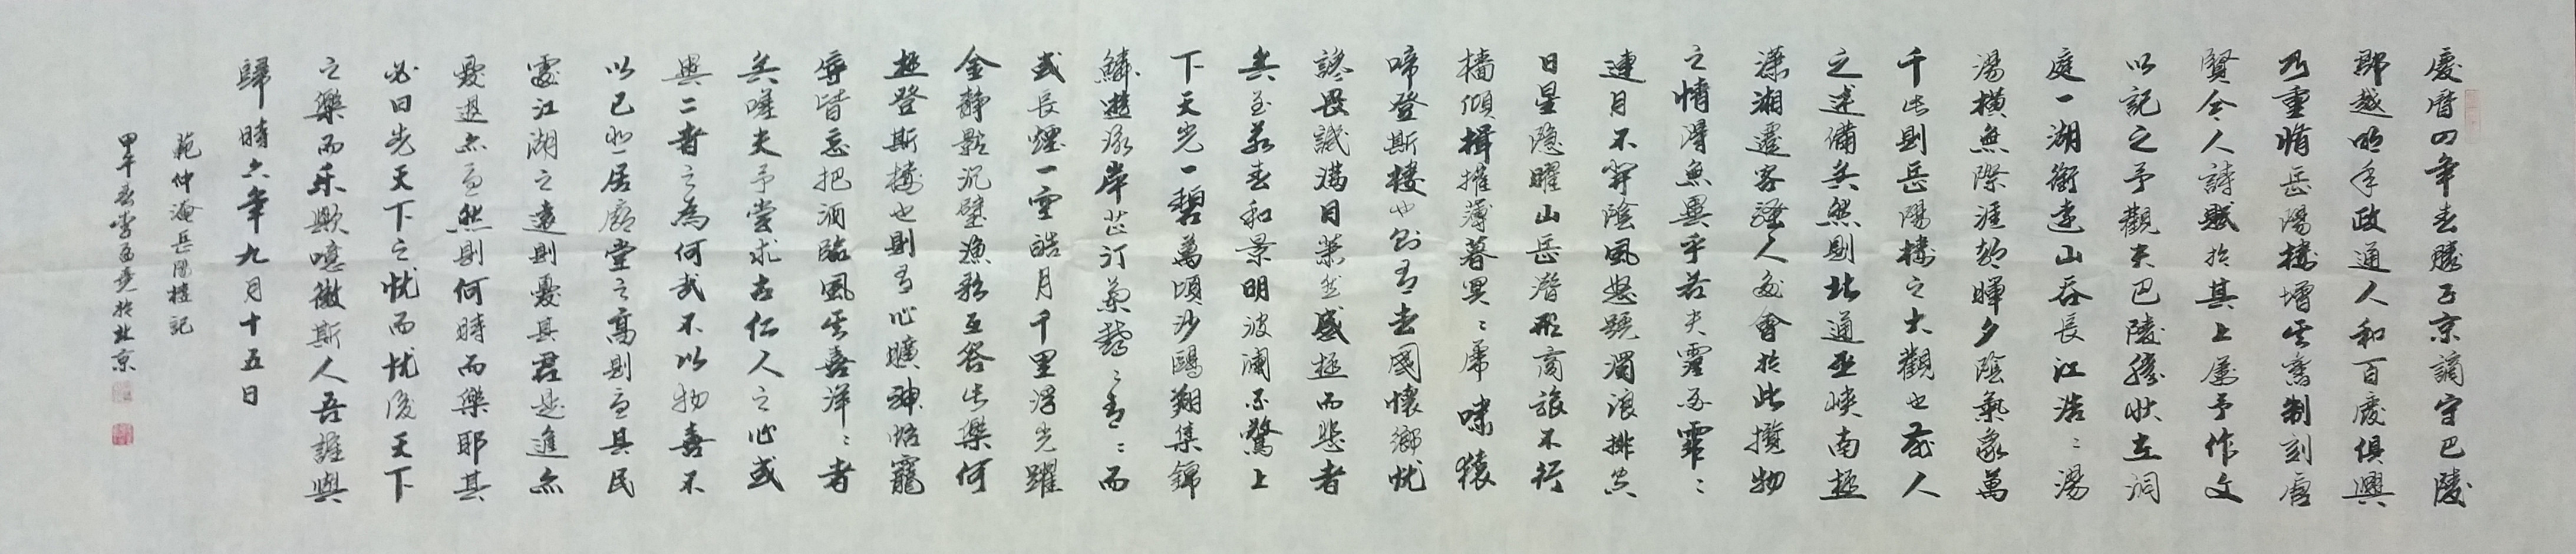 慶曆四年春滕子京謫守巴陵
郡越明年政通人和百廢俱興
乃重脩岳陽樓增其舊制刻唐
賢今人詩賦於其上屬予作文
以記之予觀夫巴陵勝狀在洞
庭一湖銜遠山吞長江浩〻湯
湯橫無際涯朝暉夕陰氣象萬
千此則岳陽樓之大觀也前人
之述備矣然則北通巫峽南極
瀟湘遷客騷人多會於此攬物
之情得無異乎若夫霪雨霏〻
連月不開陰風怒號濁浪排空
日星隱曜山岳潛形商旅不行
檣傾楫摧薄暮冥〻虎嘯猿
啼登斯樓也則有去國懷鄉忧
讒畏譏滿目蕭然感極而悲者
矣至若春和景明波瀾不驚上
下天光一碧萬頃沙鷗翔集錦
鱗遊泳岸芷汀蘭鬱〻青〻而
或長煙一空皓月千里浮光躍
金靜影沉璧漁歌互答此樂何
極登斯樓也則有心曠神怡寵
辱皆忘把酒臨風其喜洋〻者
矣嗟夫予嘗求古仁人之心或
異二者之為何哉不以物喜不
以己悲居廟堂之高則憂其民
處江湖之遠則憂其君是進亦
憂退亦憂然則何時而樂耶其
必曰先天下之忧而忧後天下
之樂而乐歟噫微斯人吾誰與
歸時六年九月十五日
範仲淹岳陽樓記
甲午春李於北京